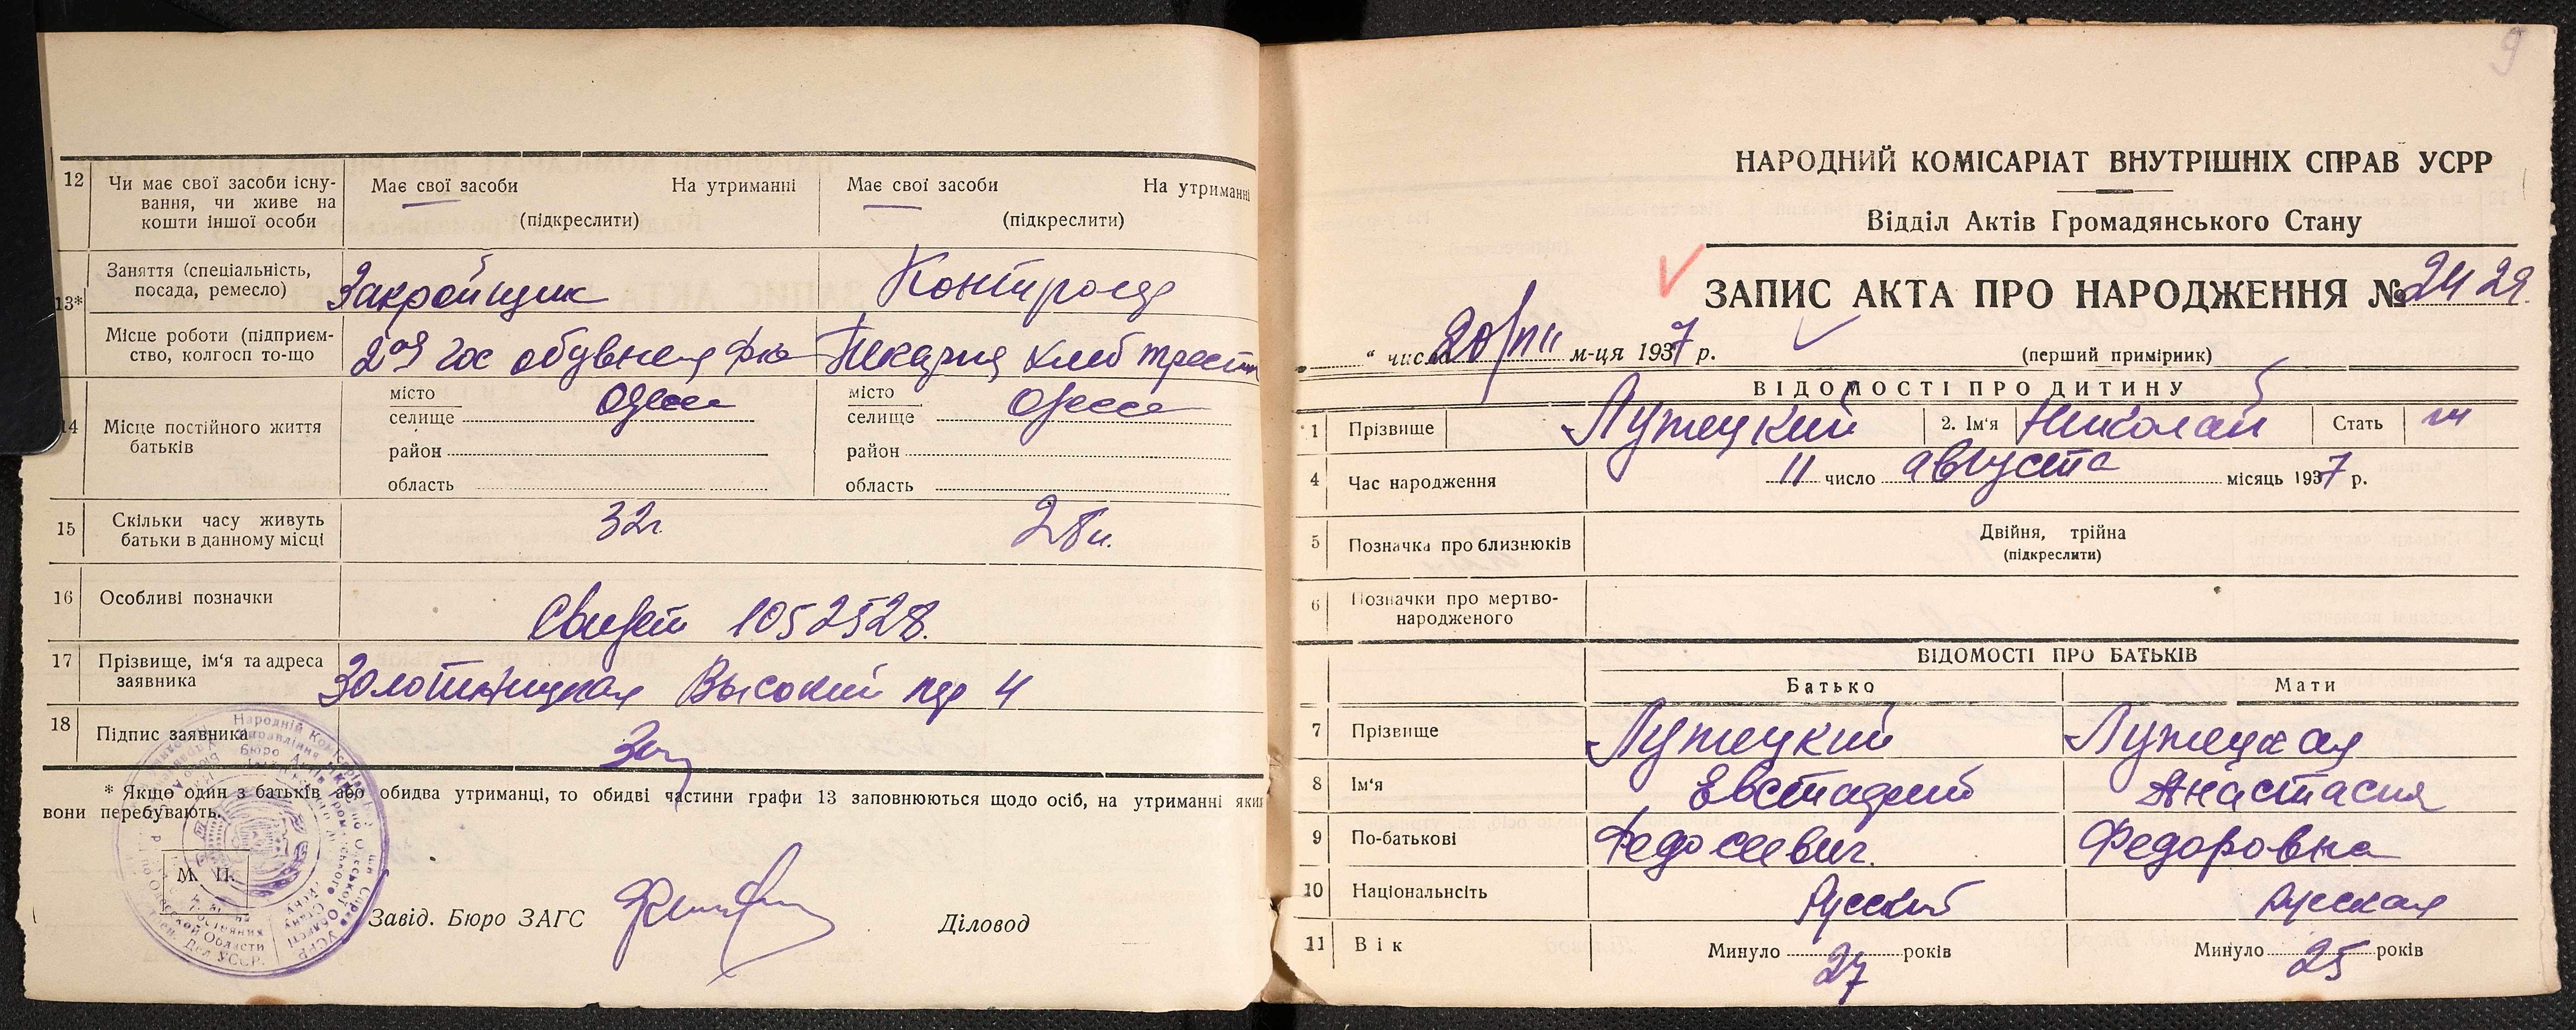 12 Чи має свої засоби існу-
вання, чи живе на
кошти іншої особи
Має свої засоби На утриманні
(підкреслити)
Має свої засоби На утриманні
(підкреслити)
13*
Заняття (спеціальність,
посада, ремесло)
Закройщик
Контролер
Місце роботи (підприєм-
ство, колгосп то-що
2ой гос обувной ф-ка
Пекарня хлеб трест
14 Місце постійного життя
батьків
місто
селище Одесса
район
область
місто
селище Одесса
район
область
15 Скільки часу живуть
батьки в данному місці
32г.
16 Особливі позначки
Свидет 1052528.
17 Прізвище, ім'я та адреса
заявника
Золотницкая Высокий пер 4
18 Підпис заявника
* Якщо один з батьків або обидва утриманці, то обидві частини графи 13 заповнюються щодо осіб, на утриманні яких
вони перебувають.
М. П.
Завід. Бюро ЗАГС
Діловод
9
НАРОДНИЙ КОМІСАРІАТ ВНУТРІШНІХ СПРАВ УСРР
Відділ Актів Громадянського Стану
ЗАПИС АКТА ПРО НАРОДЖЕННЯ № 2429.
" числа 20/VIII м-ця 1937 р.
(перший примірник)
ВІДОМОСТІ ПРО ДИТИНУ
1 Прізвище Лужецкий 2. Ім'я Николай Стать м
4 Час народження 11 число августа місяць 1937 р.
5 Позначка про близнюків
Двійня, трійна
(підкреслити)
6 Позначки про мертво-
народженого
ВІДОМОСТІ ПРО БАТЬКІВ
Батько Мати
7 Прізвище Лужецкий Лужецкая
8 Ім'я Евстафий Анастасия
9 По-батькові Федосеевич. Федоровна
10 Національнсіть Русский Русская
11 Вік Минуло 27 років Минуло 25 років